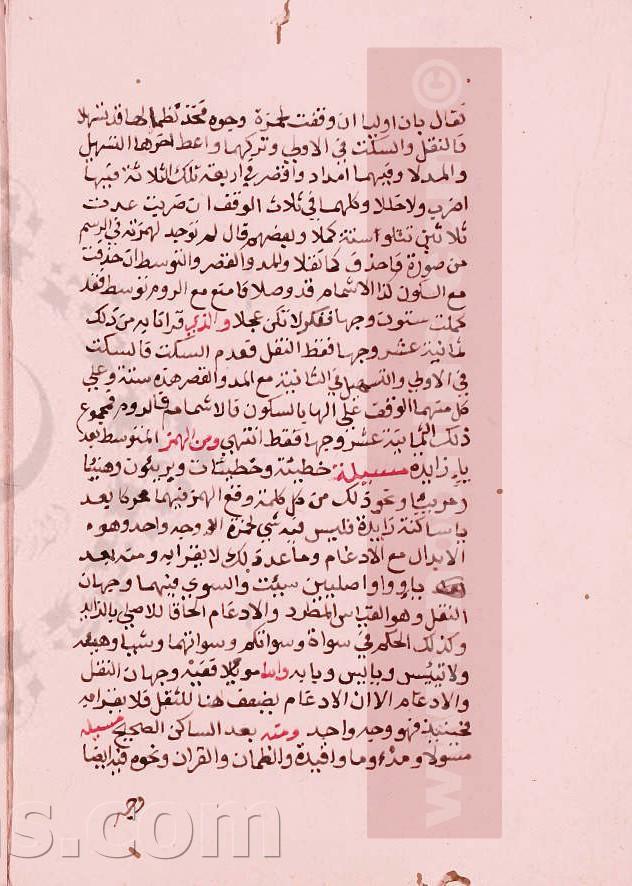 فقال بان اوليا ان وقفت لحمزة وجوه فخذ نظما لها قد تسهلا
فالنقل والسكت في الاولي وتركهما واعط اخراها التسهيل
والمد لا وفيهما امداد واقصر في اربعة تلك الثلاثة فيها
اضرب ولا حللا وكلها في ثلاث الوقف ان ضربت عدت
ثلاثين تتلو ستة كملا وبعضهم قال لم توجد لهمزته في الرسم
من صورة فاحذف كما نقلا والمد والقصر والتوسط ان حذفت
مع السكون كذا الاشمام قد وصلا فامنع مع الروم توسط فقد
كملت ستون وجها ففكر لا تكن عجلا والذي قرانا به من ذلك
ثمانية عشر وجها فقط النقل فعدم السكت فالسكت
في الاولي والتسهيل في الثانية مع المد والقصر هذه ستة وعلي
كل منهما الوقف علي الها بالسكون فالاشمام فالروم فمجموع
ذلك الثمانية عشر وجها فقط انتهي ومن الهمز المتوسط بعد
يا زايدة مسيلة خطيئة وخطيئات وبريئون وهنيئا
ومريئا ونحو ذلك من كل كلمة وقع الهمز فيها محركا بعد
يا ساكنة زايدة فليس فيه شي لحمزة الا وجه واحد وهو
الابدال مع الادغام وما عدا ذلك لا يقرا به ومنه بعد
يا وواو اصليين سيئت والسوي فيهما وجهان
النقل وهو القياس المطرد والادغام الحاقا للاصلي بالزايد
وكذلك الحكم في سواة وسواتكم وسواتهما وشيا وهيئه
ولا تيئس وييابس وبابه واما مويلا ففيه وجهان النقل
والادغام الا ان الادغام يضعف هنا للثقل فلا يقرا به
فحينيذ فهو وجه واحد ومنه بعد الساكن الصحيح مسيله
مسولا و وافيدة والظمان والقران ونحوه فيه ايضا